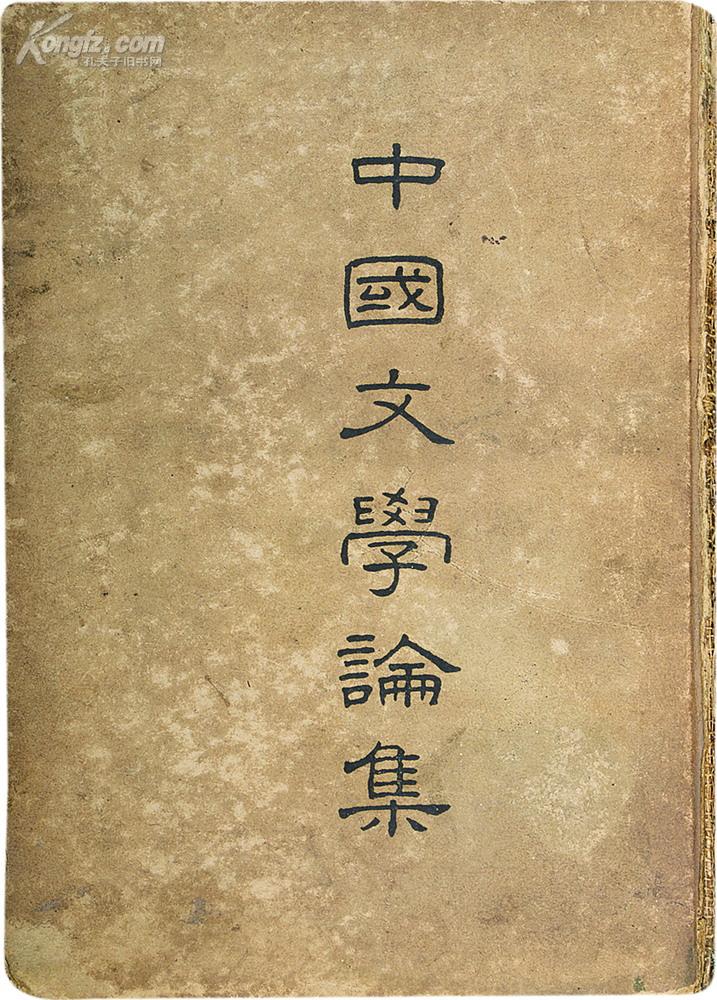 Kongfz.com
孔夫子旧书网
中國文學論集